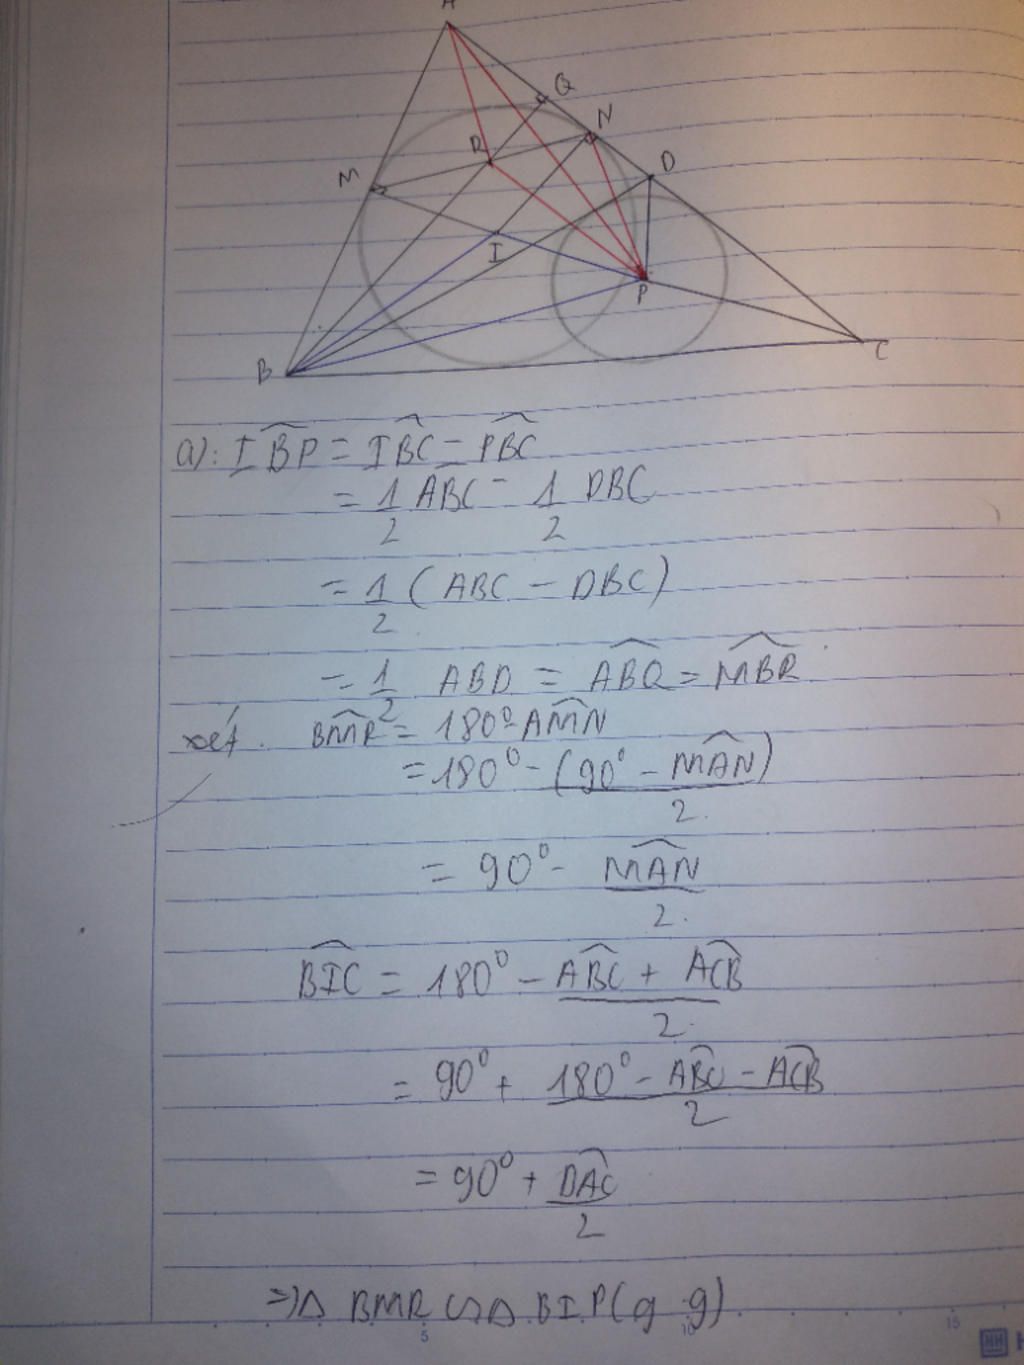 A
Q
N
R
D
M
I
P
B
C
a): IBP = IBC - PBC
= 1/2 ABC - 1/2 DBC
= 1/2 ( ABC - DBC )
= 1/2 ABD = ABQ = MBR
xét. BMR = 180° - AMN
= 180° - (90° - MAN)/2.
= 90° - MAN/2.
BIC = 180° - ABC + ACB/2.
= 90° + 180° - ABC - ACB/2
= 90° + DAC/2
=> Δ BMR ∽ Δ BIP (g.g)
5 10 15